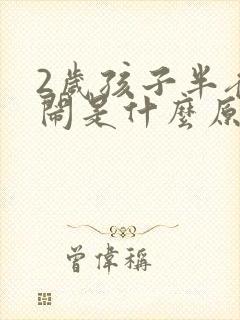 2歲孩子半
鬧是什麼原
曾偉稱